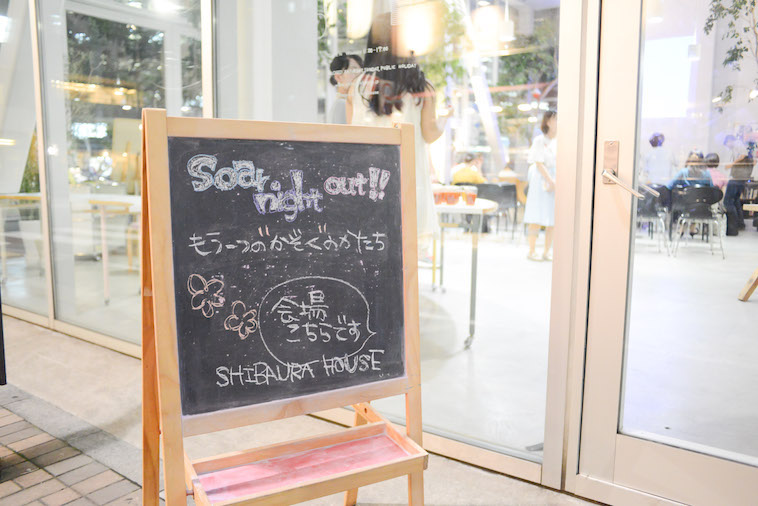 Soar night out!!
もう一つの"かぞく"のかたち
会場
こちらです
SHIBAURA HOUSE